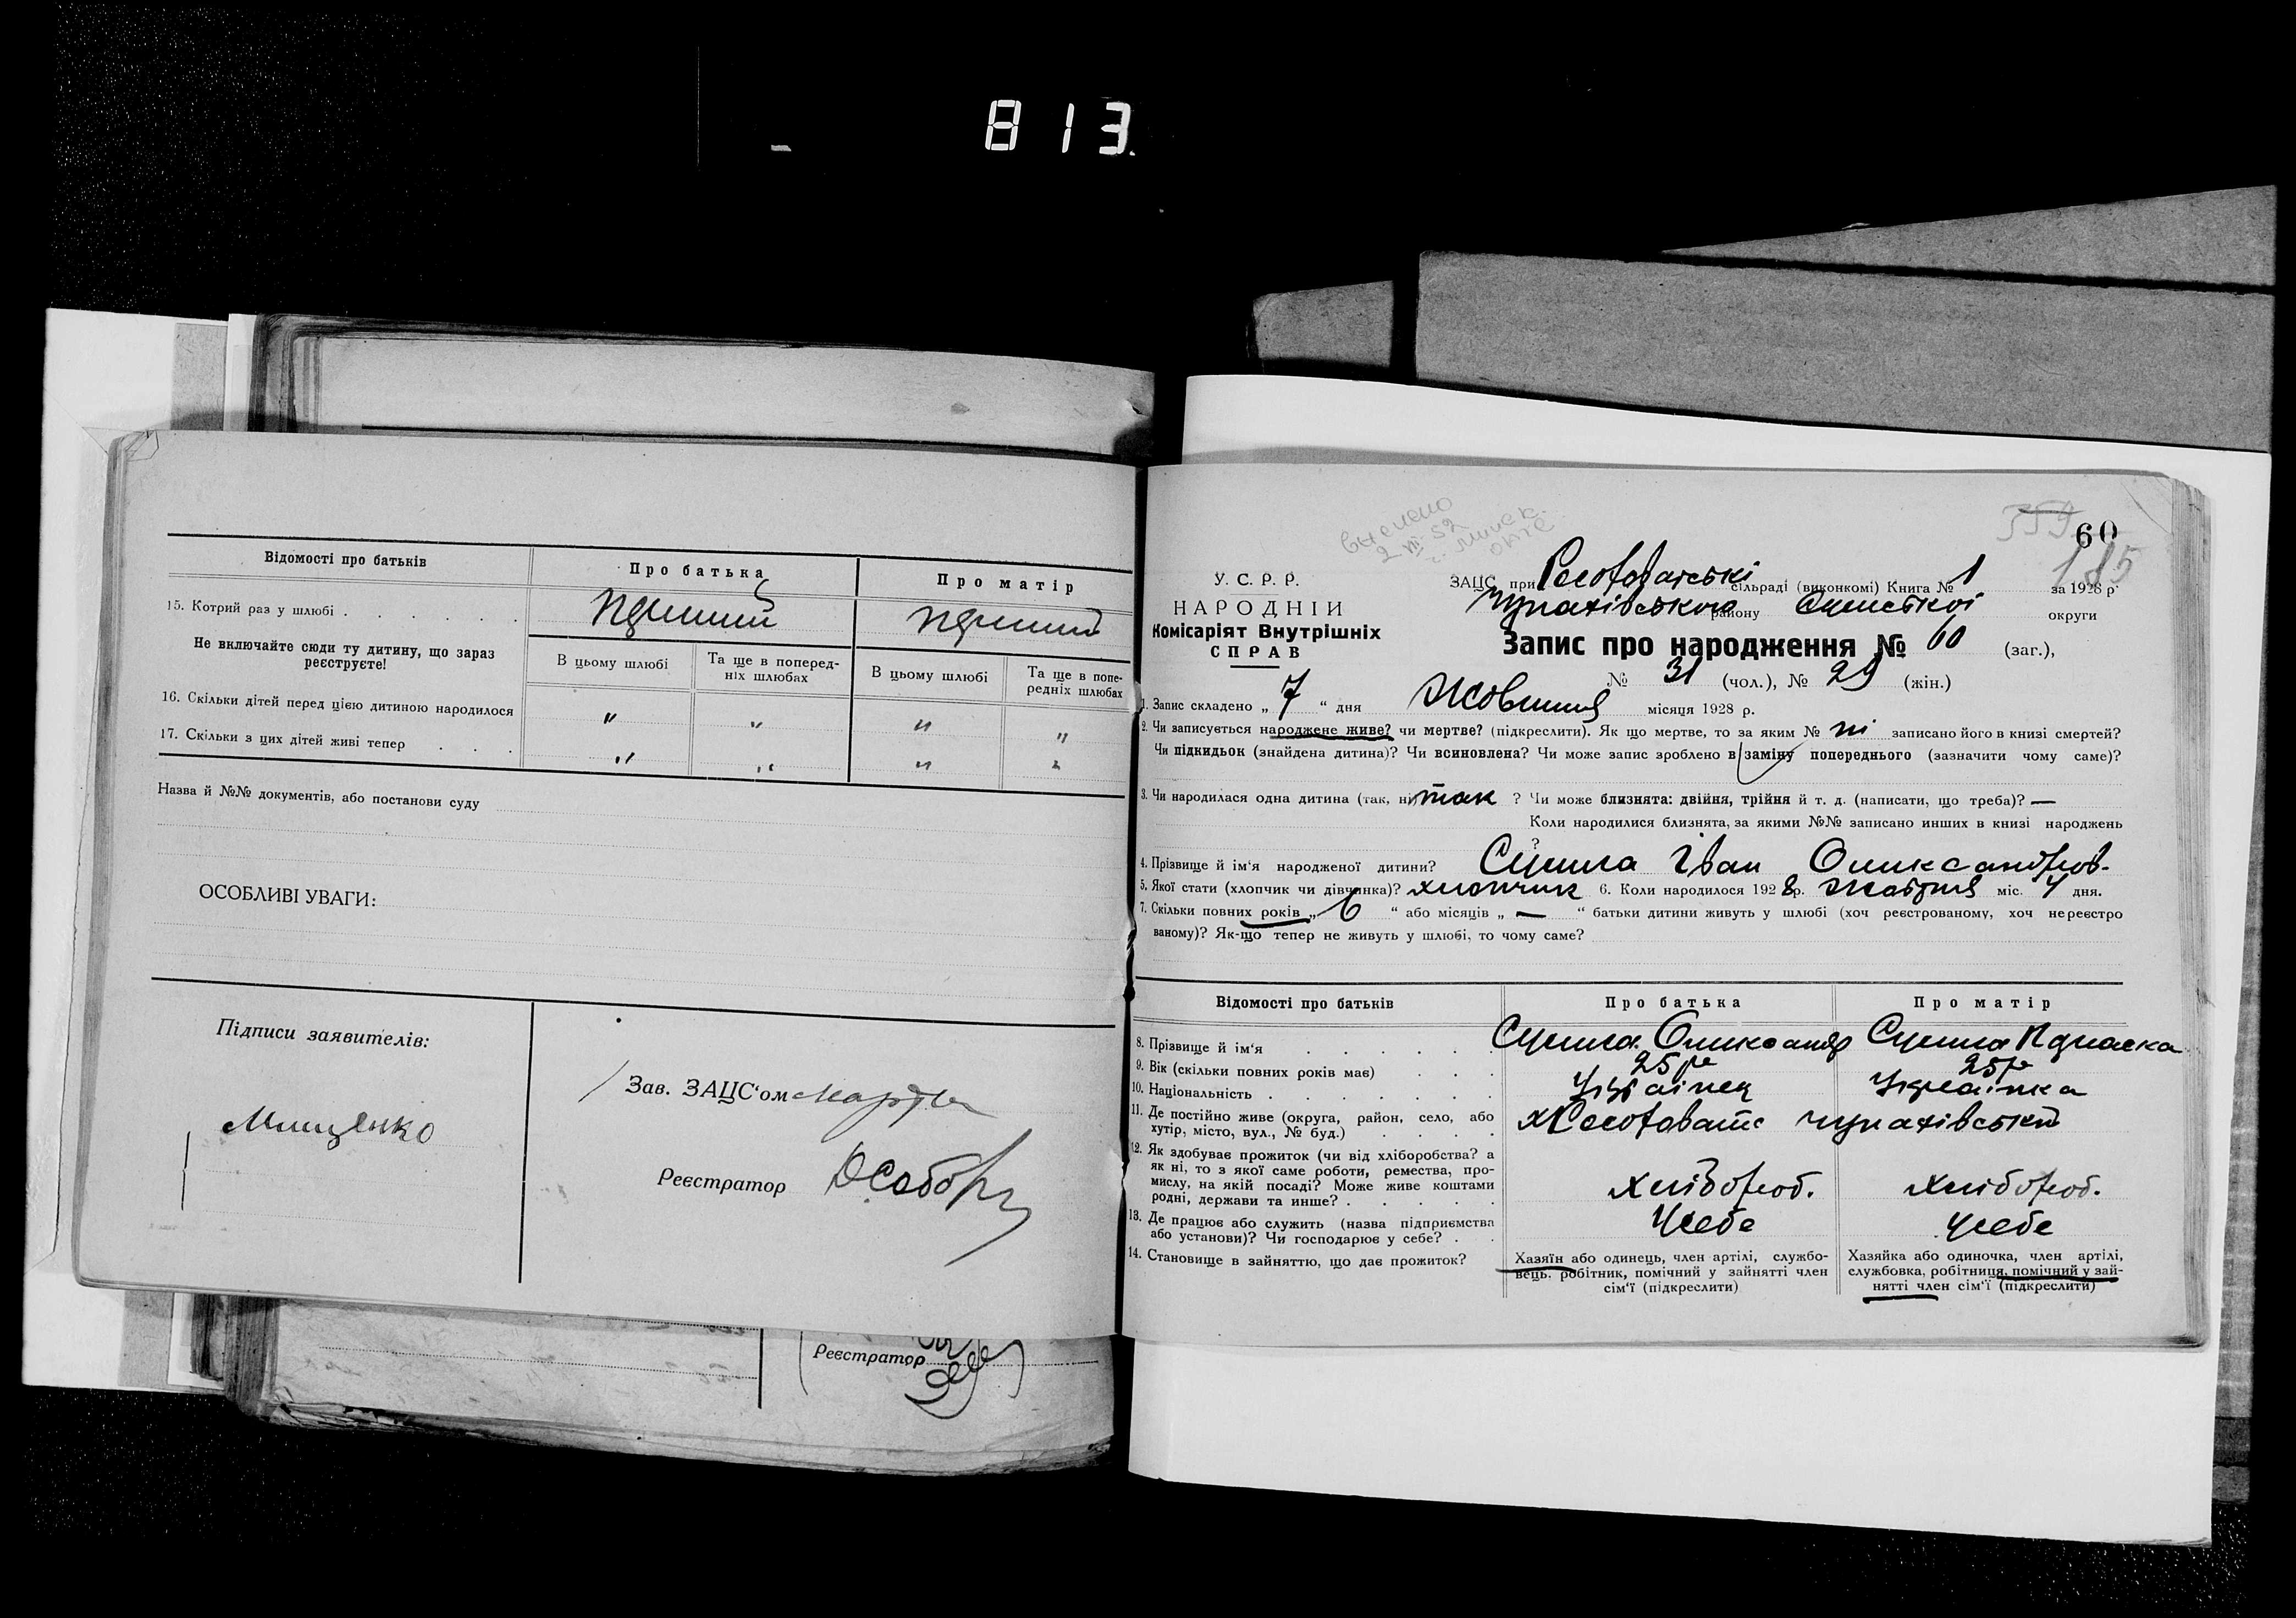 813.
Відомості про батьків
Про батька
Про матір
15. Котрий раз у шлюбі
Не включайте сюди ту дитину, що зараз реєструєте!
В цьому шлюбі
Та ще в поперед-
ніх шлюбах
В цьому шлюбі
Та ще в попе-
редніх шлюбах
16. Скільки дітей перед цією дитиною народилося " " " "
17. Скільки з цих дітей живі тепер " " " "
Назва й №№ документів, або постанови суду
ОСОБЛИВІ УВАГИ:
Підписи заявителів:
Мищенко
Зав. ЗАЦС'ом
Реєстратор
Реєстратор
60
У. С. Р. Р.
НАРОДНІЙ
Комісаріят Внутрішніх
СПРАВ
ЗАЦС при сільраді (виконкомі) Книга № 1 за 1928 р.
району округи
Запис про народження № 60 (заг.),
№ 31 (чол.), № 29 (жін.)
1. Запис складено „ 7 “ дня Жовтня місяця 1928 р.
2. Чи записується народжене живе? чи мертве? (підкреслити). Як що мертве, то за яким № ні записано його в книзі смертей?
Чи підкидьок (знайдена дитина)? Чи всиновлена? Чи може запис зроблено в заміну попереднього (зазначити чому саме)?
3. Чи народилася одна дитина (так, ні) так ? Чи може близнята: двійня, трійня й т. д. (написати, що треба)? —
Коли народилися близнята, за якими №№ записано инших в книзі народжень
?
4. Прізвище й ім'я народженої дитини? Іван Олександров.
5. Якої стати (хлопчик чи дівчинка)? хлопчик 6. Коли народилося 1928 р. Жовтня міс. 4 дня.
7. Скільки повних років „ 6 “ або місяців „ — “ батьки дитини живуть у шлюбі (хоч реєстрованому, хоч нереєстро
ваному)? Як-що тепер не живуть у шлюбі, то чому саме?
Відомості про батьків
Про батька
Про матір
8. Прізвище й ім'я Олександр
9. Вік (скільки повних років має) 25 р 25 р
10. Національність Українец Українка
11. Де постійно живе (округа, район, село, або
хутір, місто, вул., № буд.)
12. Як здобуває прожиток (чи від хліборобства? а
як ні, то з якої саме роботи, ремества, про-
мислу, на якій посаді? Може живе коштами
родні, держави та инше?
хлібороб. хлібороб.
13. Де працює або служить (назва підприємства
або установи)? Чи господарює у себе?
У себе у себе
14. Становище в зайняттю, що дає прожиток?
Хазяїн або одинець, член артілі, службо-
вець, робітник, помічний у зайнятті член
сім'ї (підкреслити)
Хазяйка або одиночка, член артілі,
службовка, робітниця, помічний у зай-
нятті член сім'ї (підкреслити)